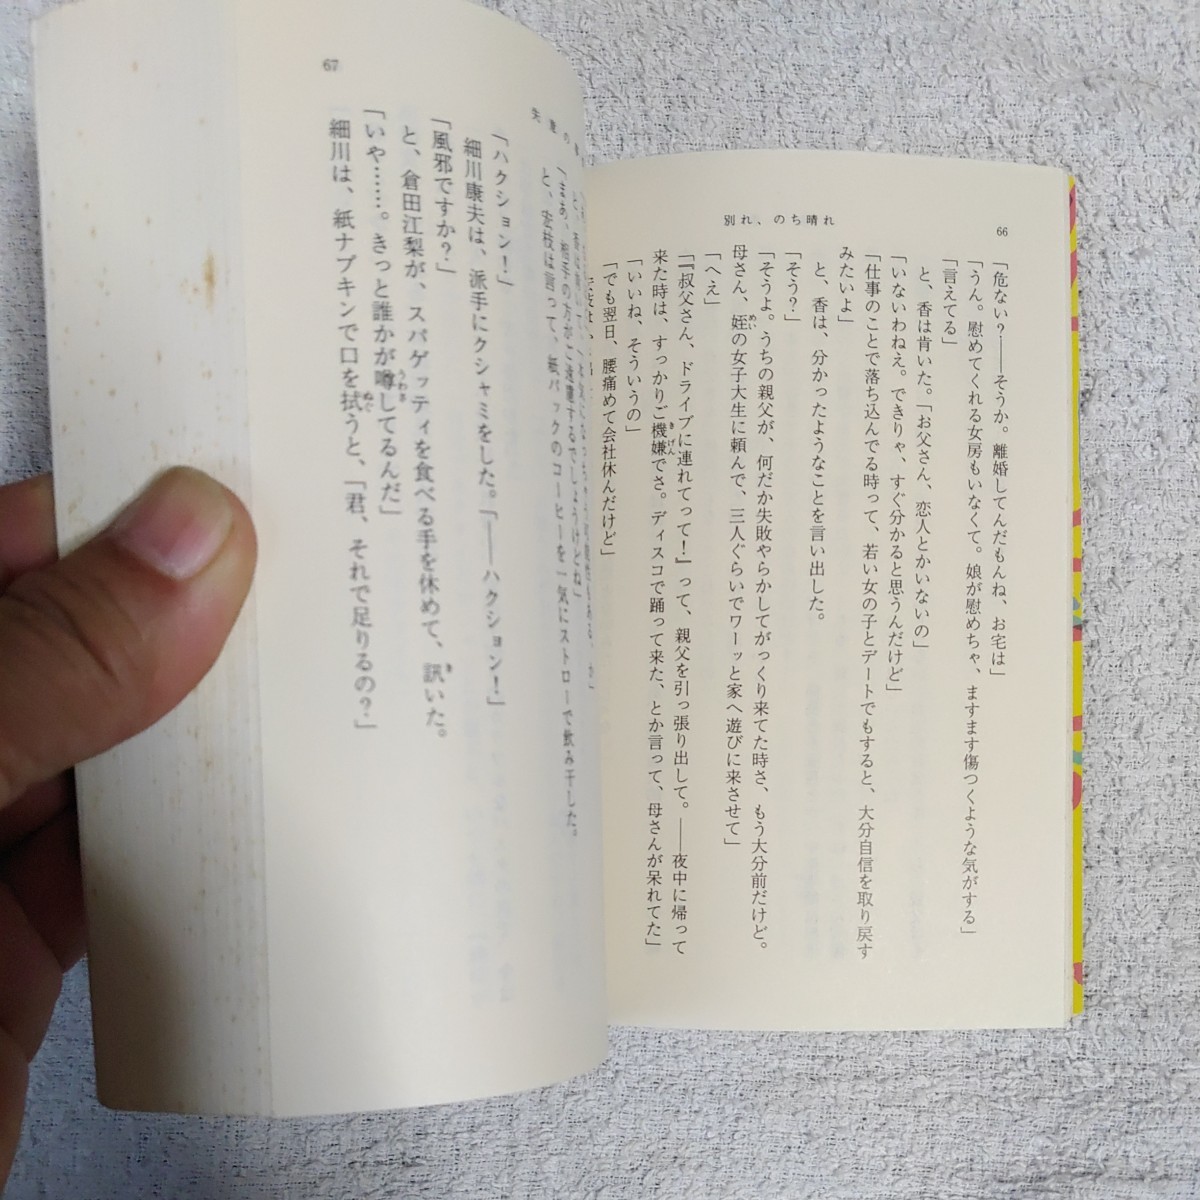 別れ、のち晴れ
66
「危ない？──そうか。離婚してんだもんね、お宅は」
「うん。慰めてくれる女房もいなくて。娘が慰めちゃ、ますます傷つくような気がする」
「言えてる」
と、香は肯いた。「お父さん、恋人とかいないの」
「いないわねえ。できりゃ、すぐ分かると思うんだけど」
「仕事のことで落ち込んでる時って、若い女の子とデートでもすると、大分自信を取り戻す
みたいよ」
と、香は、分かったようなことを言い出した。
「そう？」
「そうよ。うちの親父が、何だか失敗やらかしてがっくり来てた時さ、もう大分前だけど。
母さん、姪の女子大生に頼んで、三人ぐらいでワーッと家へ遊びに来させて」
「へえ」
「『叔父さん、ドライブに連れてって！』って、親父を引っ張り出して。──夜中に帰って
来た時は、すっかりご機嫌でさ。ディスコで踊って来た、とか言って、母さんが呆れてた」
「いいね、そういうの」
「でも翌日、腰痛めて会社休んだけど」
67
「まあ、相手の方がご遠慮するでしょうけどね」
と、宏枝は言って、紙パックのコーヒーを一気にストローで飲み干した。
「ハクション！」
細川康夫は、派手にクシャミをした。「──ハクション！」
「風邪ですか？」
と、倉田江梨が、スパゲッティを食べる手を休めて、訊いた。
「いや……。きっと誰かが噂してるんだ」
細川は、紙ナプキンで口を拭うと、「君、それで足りるの？」